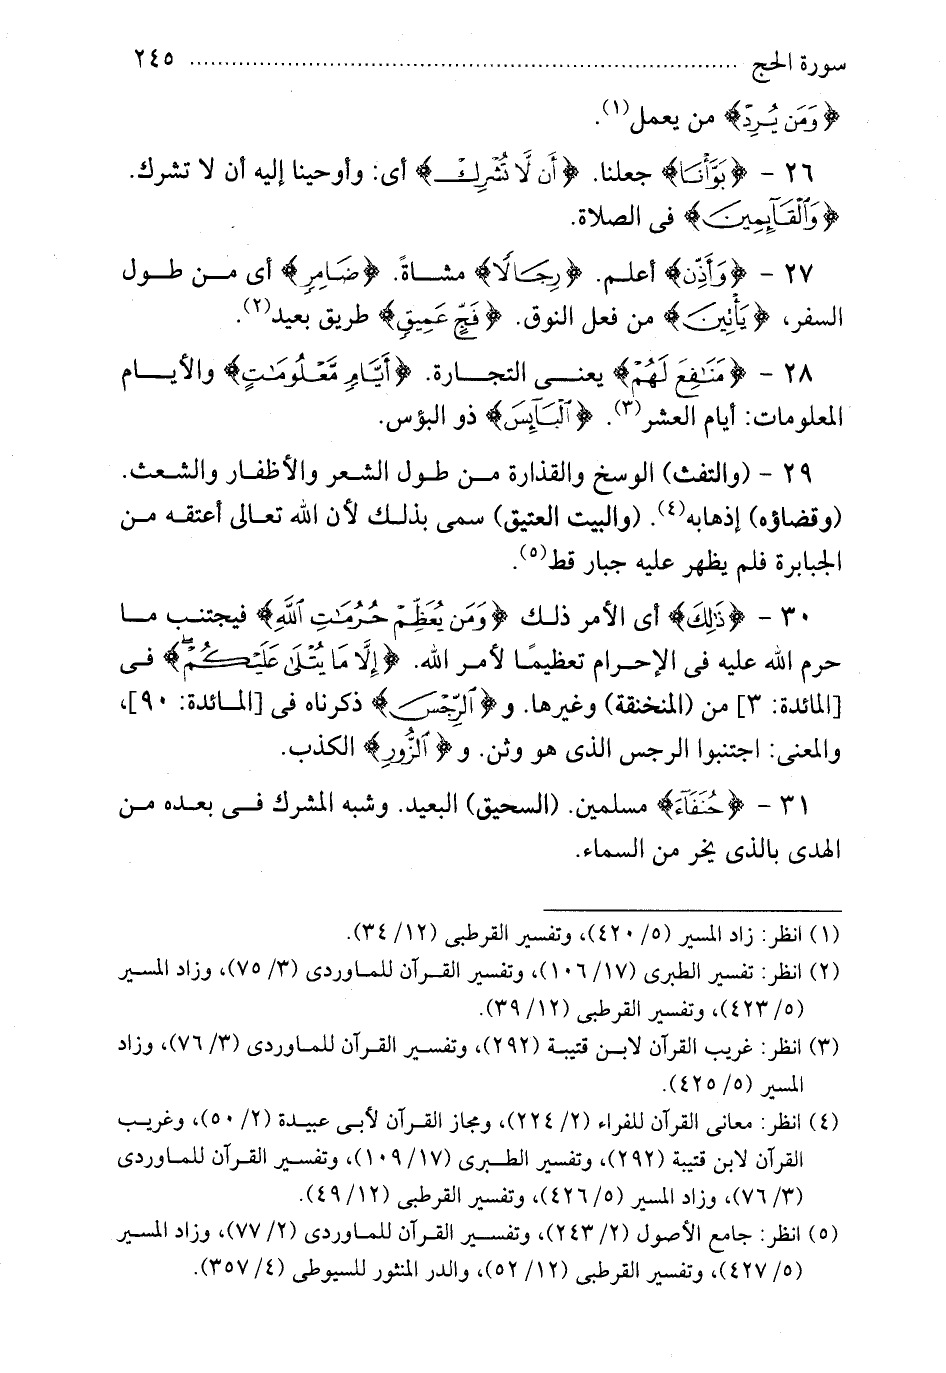 سورة الحج ........................................................................ ٢٤٥
﴿وَمَن يُرِدْ﴾ من يعمل(١).
٢٦ - ﴿بَوَّأْنَا﴾ جعلنا. ﴿أَن لَّا تُشْرِكْ﴾ أى: وأوحينا إليه أن لا تشرك.
﴿وَٱلْقَآئِمِينَ﴾ فى الصلاة.
٢٧ - ﴿وَأَذِّن﴾ أعلم. ﴿رِجَالًا﴾ مشاةً. ﴿ضَامِرٍ﴾ أى من طول
السفر، ﴿يَأْتِينَ﴾ من فعل النوق. ﴿فَجٍّ عَمِيقٍ﴾ طريق بعيد(٢).
٢٨ - ﴿مَنَٰفِعَ لَهُمْ﴾ يعنى التجارة. ﴿أَيَّامٍ مَّعْلُومَٰتٍ﴾ والأيام
المعلومات: أيام العشر(٣). ﴿ٱلْبَآئِسَ﴾ ذو البؤس.
٢٩ - (والتفث) الوسخ والقذارة من طول الشعر والأظفار والشعث.
(وقضاؤه) إذهابه(٤). (والبيت العتيق) سمى بذلك لأن الله تعالى أعتقه من
الجبابرة فلم يظهر عليه جبار قط(٥).
٣٠ - ﴿ذَٰلِكَ﴾ أى الأمر ذلك ﴿وَمَن يُعَظِّمْ حُرُمَٰتِ ٱللَّهِ﴾ فيجتنب ما
حرم الله عليه فى الإحرام تعظيمًا لأمر الله. ﴿إِلَّا مَا يُتْلَىٰ عَلَيْكُمْ ۖ﴾ فى
[المائدة: ٣] من (المنخنقة) وغيرها. و﴿ٱلرِّجْسَ﴾ ذكرناه فى [المائدة: ٩٠]،
والمعنى: اجتنبوا الرجس الذى هو وثن. و﴿ٱلزُّورِ﴾ الكذب.
٣١ - ﴿حُنَفَآءَ﴾ مسلمين. (السحيق) البعيد. وشبه المشرك فى بعده من
الهدى بالذى يخر من السماء.
(١) انظر: زاد المسير (٥/ ٤٢٠)، وتفسير القرطبى (١٢/ ٣٤).
(٢) انظر: تفسير الطبرى (١٧/ ١٠٦)، وتفسير القرآن للماوردى (٣/ ٧٥)، وزاد المسير
(٥/ ٤٢٣)، وتفسير القرطبى (١٢/ ٣٩).
(٣) انظر: غريب القرآن لابن قتيبة (٢٩٢)، وتفسير القرآن للماوردى (٣/ ٧٦)، وزاد
المسير (٥/ ٤٢٥).
(٤) انظر: معانى القرآن للفراء (٢/ ٢٢٤)، ومجاز القرآن لأبى عبيدة (٢/ ٥٠)، وغريب
القرآن لابن قتيبة (٢٩٢)، وتفسير الطبرى (١٧/ ١٠٩)، وتفسير القرآن للماوردى
(٣/ ٧٦)، وزاد المسير (٥/ ٤٢٦)، وتفسير القرطبى (١٢/ ٤٩).
(٥) انظر: جامع الأصول (٢/ ٢٤٣)، وتفسير القرآن للماوردى (٢/ ٧٧)، وزاد المسير
(٥/ ٤٢٧)، وتفسير القرطبى (١٢/ ٥٢)، والدر المنثور للسيوطى (٤/ ٣٥٧).